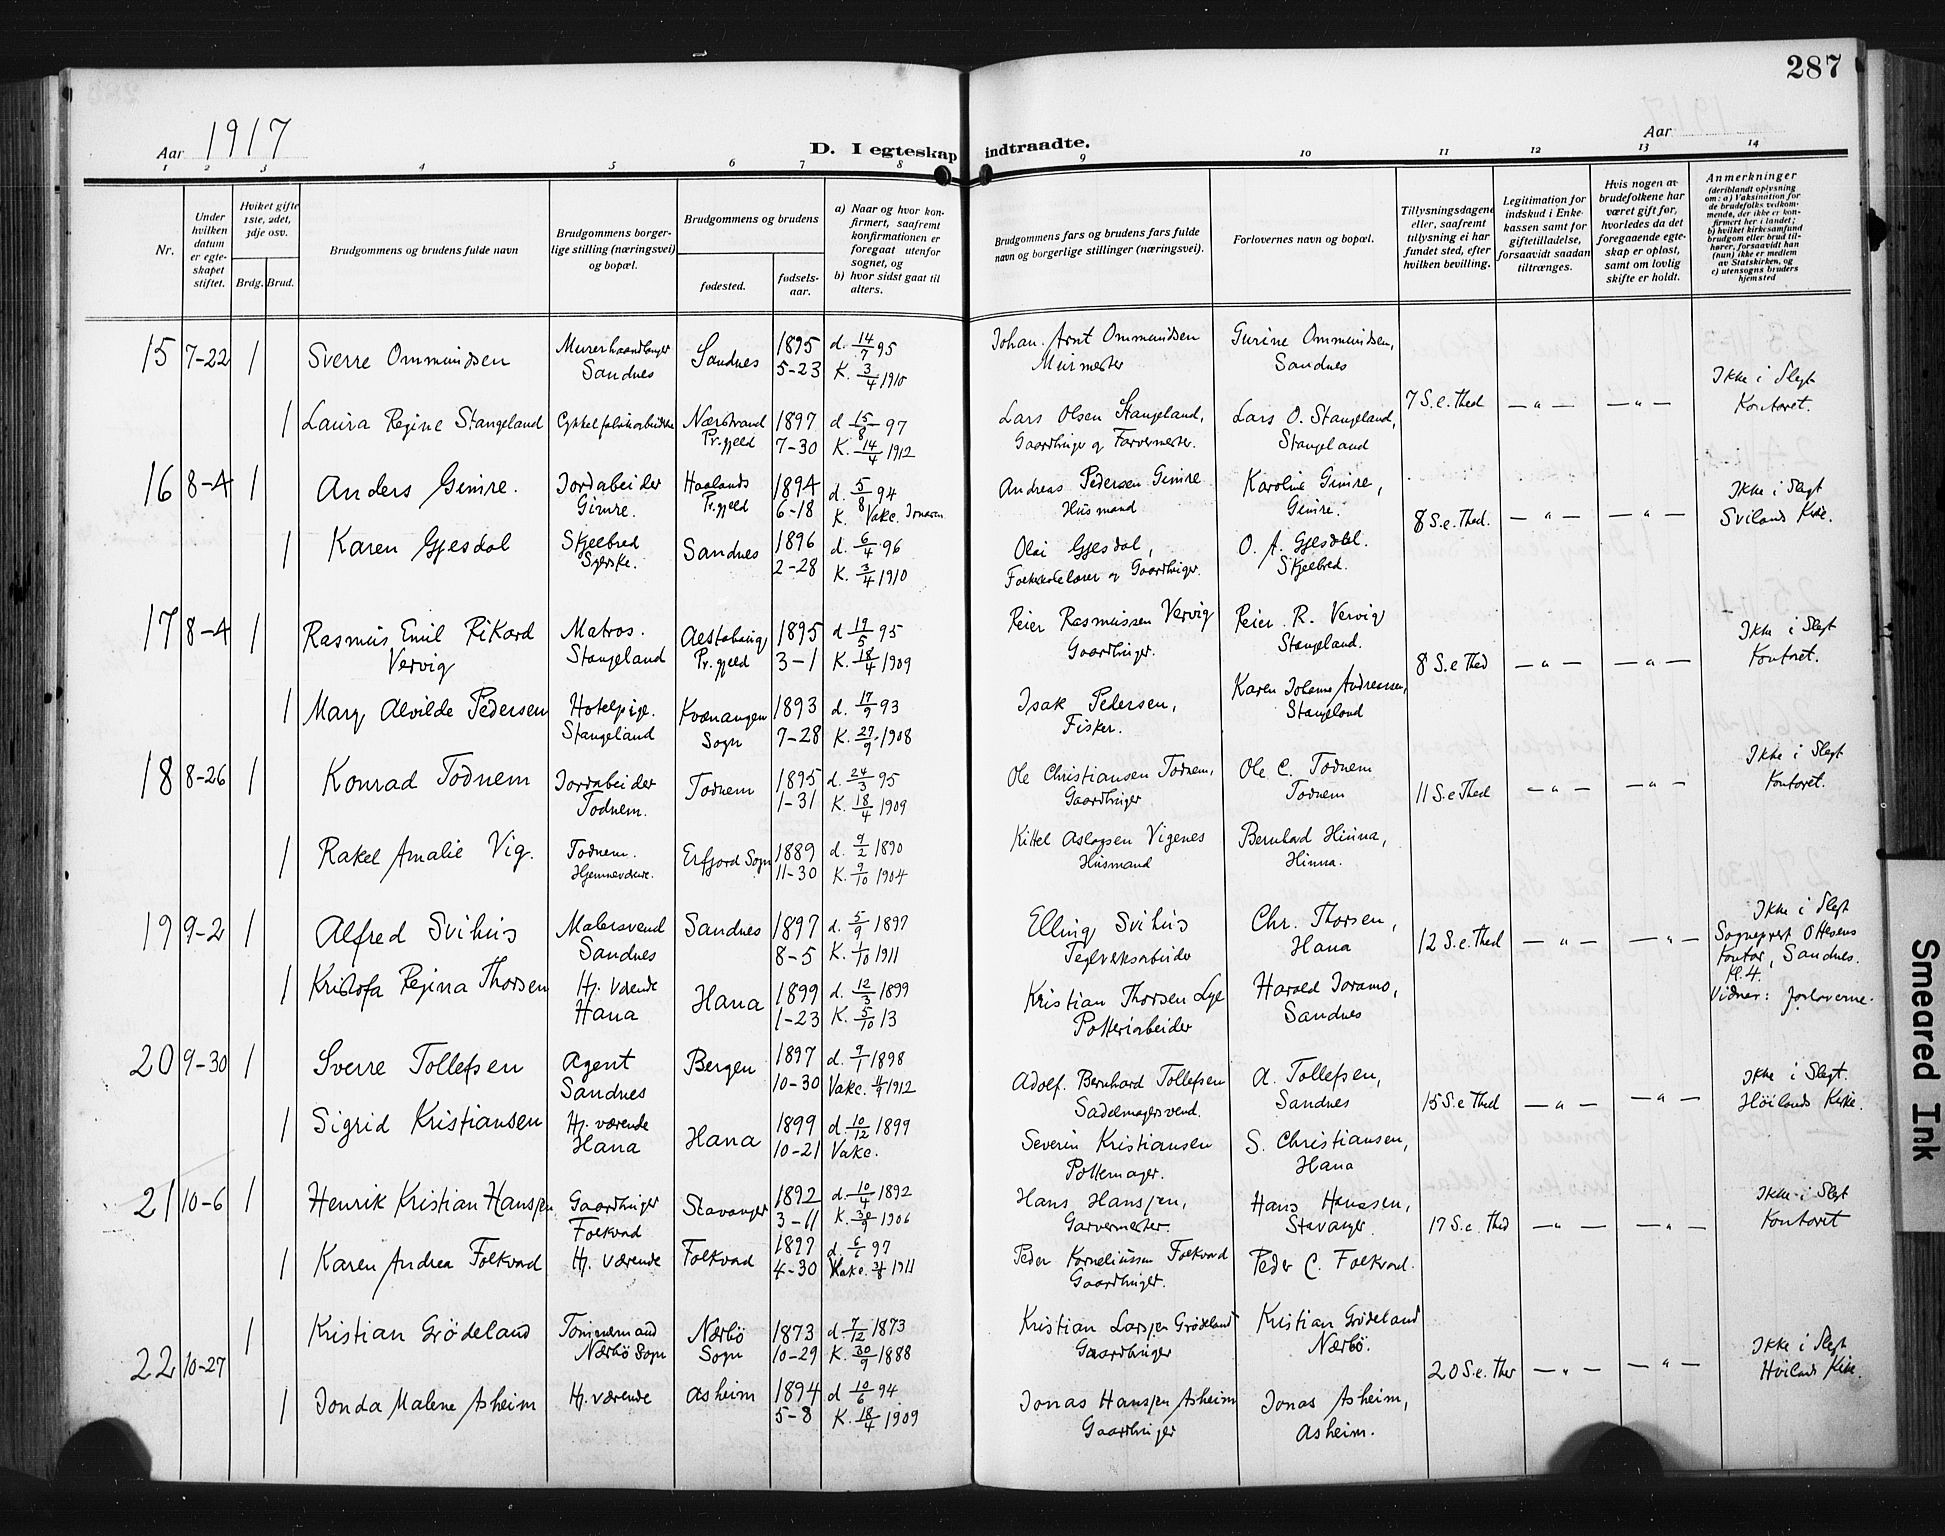 287
Aar 1917
D. I egteskap indtraadte.
Aar
1 2 3 4 5 6 7 8 9 10 11 12 13 14
Nr.
Under hvilken datum er egteskapet stiftet.
Hviket gifte 1ste, 2det, 3dje osv.
Brdg. Brud.
Brudgommens og brudens fulde navn
Brudgommens borgerlige stilling (næringsvei) og bopæl.
Brudgommens og brudens
fødested.
fødselsaar.
a) Naar og hvor konfirmert, saafremt konfirmationen er foregaat utenfor sognet, og
b) hvor sidst gaat til alters.
Brudgommens fars og brudens fars fulde navn og borgerlige stillinger (næringsvei).
Forlovernes navn og bopæl.
Tillysningsdagene eller, saafremt tillysning ei har fundet sted, efter hvilken bevilling.
Legitimation for indskud i Enkekassen samt for giftetilladelse, forsaavidt saadan tiltrænges.
Hvis nogen av brudefolkene har været gift før, hvorledes da det foregaaende egteskap er opløst, samt om lovlig skifte er holdt.
Anmerkninger
(deriblandt oplysning om: a) Vaksination for de brudefolks vedkommende, der ikke er konfirmert her i landet; b) hvilket kirkesamfund brudgom eller brud tilhører, forsaavidt han (hun) ikke er medlem av Statskirken, og c) utensogns bruders hjemsted
15 7-22 1 Sverre Ommundsen Murerhaandlanger Sandnes Sandnes 1895 5-23 d. 14/7 95 K. 3/4 1910 Johan Arnt Ommundsen Murmester Gurine Ommundsen, Sandnes
7 S.e. Thed — " — — " — Ikke i Slegt Kontoret.
1 Laura Regine Stangeland Cykkelfabrikarbeiderske Nærstrand Pr.gjeld 1897 7-30 d 15/8 97 K. 14/4 1912 Lars Olsen Stangeland, Gaardbruger og Farvermester. Lars O. Stangeland, Stangeland
16 8-4 1 Anders Gimre. Jordabeider Gimre. Haalands Pr.gjeld 1894 6-18 d. 5/8 94 K. Vake. Andreas Pedersen Gimre Husmand Karoline Gimre, Gimre.
8 S.e. Thed. — " — — " — Ikke i Slegt Svilands Kirke.
1 Karen Gjesdal Skjelbred Syerske. Sandnes 1896 2-28 d. 6/4 96 K. 3/4 1910 Olai Gjesdal, Folkeskolelærer og Gaardbruger. O. A. Gjesdal. Skjelbred.
17 8-4 1 Rasmus Emil Rikard Vervig Matros. Stangeland Pr.gjeld 1895 3-1 d 19/5 95 K. 18/4 1909 Peier Rasmussen Vervig Gaardbruger. Peier R. Vervig Stangeland.
8 S.e Thed — " — — " — Ikke i Slegt Kontoret.
1 Mary Alvilde Pedersen Hotelpige. Stangeland Kvænangen Sogn 1893 7-28 d. 17/9 93 K. 27/9 1908 Isak Pedersen, Fisker. Karen Johanne Andreassen, Stangeland
18 8-26 1 Konrad Todnem Jordabeider Todnem. Todnem 1895 1-31 d. 24/3 95 K. 18/4 1909 Ole Christiansen Todnem, Gaardbruger Ole C. Todnem Todnem
11 S.e Thed — " — — " — Ikke i Slegt Kontoret.
1 Rakel Amalie Vig. Todnem. Hjemmeværende. Erfjord Sogn 1889 11-30 d. 9/2 1890 K. 9/10 1904 Kittel Aslagsen Vigenes Husmand Bernhard Hinna, Hinna.
19 9-2 1 Alfred Svihus Malersvend Sandnes Sandnes 1897 8-5 d. 5/9 1897 K. 1/10 1911 Elling Svihus Teglverksarbeider Chr. Thorsen, Hana
12 S.e. Thed — " — — " — Ikke i Slegt Sogneprest Ottesens Kontor, Sandnes. Kl. 4. Vidner: forloverne.
1 Kristofa Regina Thorsen Hj. værende Hana Hana 1899 1-23 d. 12/3 1899 K. 5/10 13 Kristian Thorsen Lye Potteriarbeider Harald Joramo, Sandnes
20 9-30 1 Sverre Tollefsen Agent Sandnes Bergen 1897 10-30 d. 9/1 1898 Vakc. 1912 Adolf Bernhard Tollefsen Sadelmagersvend. A. Tollefsen, Sandnes
15 S.e Thed — " — — " — Ikke i Slegt. Höilands Kirke.
1 Sigrid Kristiansen Hj. værende Hana Hana 1899 10-21 d. 10/12 1899 Vakc. Severin Kristiansen Pottemager. S. Christiansen, Hana
21 10-6 1 Henrik Kristian Hansen Gaardbruger Folkvord Stavanger 1892 3-11 d. 10/4 1892 K. 30/9 1906 Hans Hansen, Garvermester. Hans Hanssen, Stavanger.
17 S.e. Thed — " — — " — Ikke i Slegt Kontoret
1 Karen Andrea Folkvord Hj. værende Folkvord 1897 4-30 d. 6/6 97 Vakc. 1911 Peder Korneliussen Folkvord Gaardbruger. Peder C. Folkvord.
22 10-27 1 Kristian Grödeland Tömmermand Nærbö Sogn Nærbö Sogn 1873 10-29 d. 7/12 1873 K. 30/9 1888 Kristian Larsen Grödeland Gaardbruger Kristian Grödeland Nærbö.
20 S.e. Ther — " — — " — Ikke i Slegt Höilands Kirke.
1 Jonda Malene Asheim Hj. værende Asheim 1894 5-8 d 10/6 94 K. 18/4 1909 Jonas Hansen Asheim Gaardbruger Jonas Asheim, Asheim.
Smeared Ink